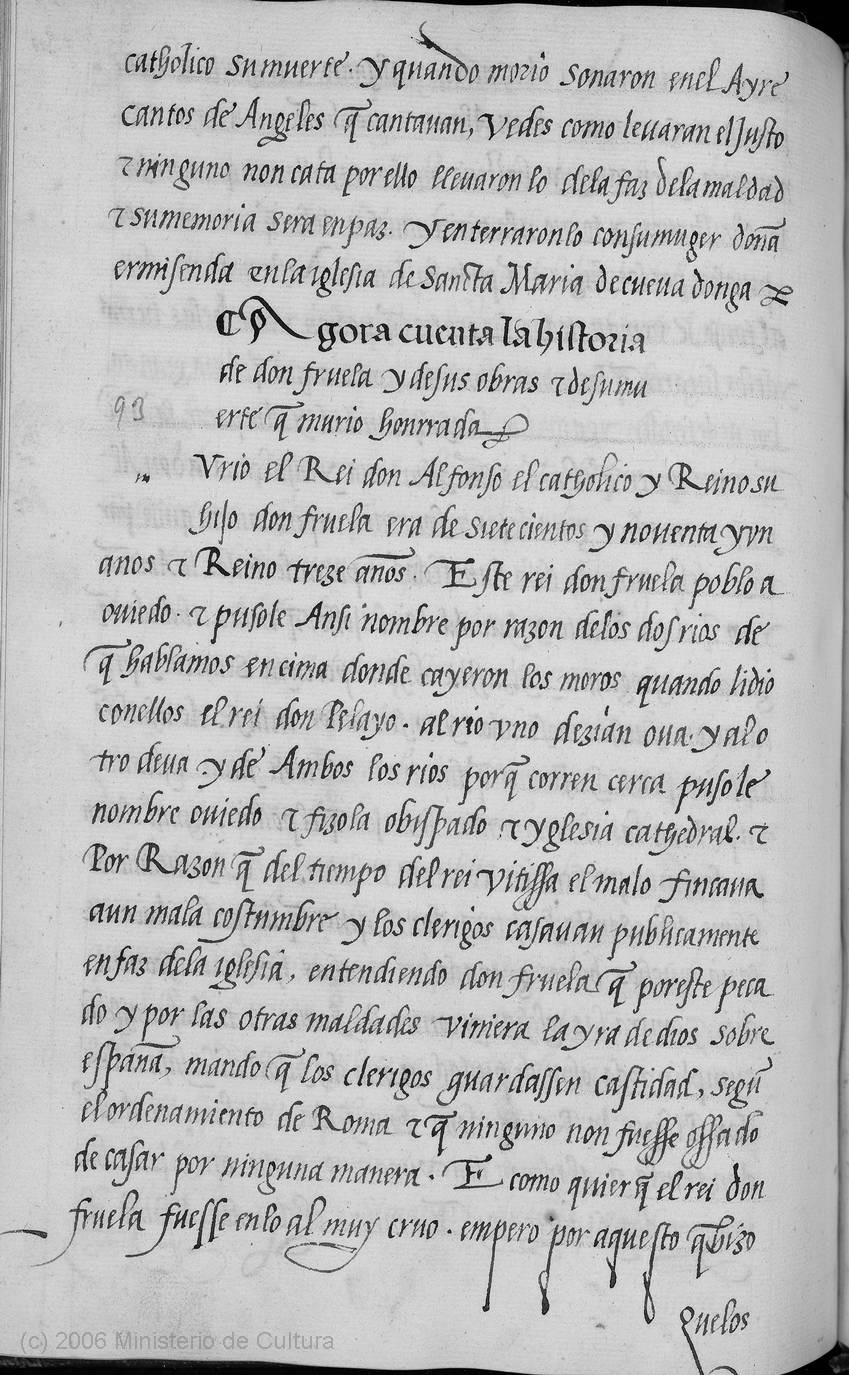 catholico su muerte. y quando morio sonaron enel Ayre
cantos de Angeles q̃ cantauan, Vedes como leuaran el Justo
⁊ ninguno non cata por ello lleuaron lo dela faz dela maldad
⁊ su memoria sera en paz. y enterraronlo con su muger doña
ermisenda en la iglesia de Sancta Maria de cueua donga
Agora cuenta la historia
de don fruela y de sus obras ⁊ de su mu
93
erte q̃ murio honrrada
Vrio el Rei don Alfonso el catholico y Reino su
hijo don fruela era de siete cientos y nouenta y vn
anos ⁊ Reino treze años. Este rei don fruela poblo a
ouiedo. ⁊ pusole Ansi nombre por razon delos dos rios de
q̃ hablamos encima donde cayeron los moros quando lidio
conellos el rei don Pelayo. al rio vno dezian oua. y al o
tro deua. y de Ambos los rios porq̃ corren cerca pusole
nombre ouiedo ⁊ fizola obispado ⁊ yglesia cathedral. ⁊
Por Razon q̃ del tiempo del rei vitissa el malo fincaua
aun mala costumbre y los clerigos casauan publicamente
en faz dela iglesia, entendiendo don fruela q̃ por este peca
do y por las otras maldades viniera la yra de dios sobre
españa, mando q̃ los clerigos guardassen castidad, segũ
el ordenamiento de Roma ⁊ q̃ ninguno non fuesse ossado
de casar por ninguna manera. E como quier q̃ el rei don
fruela fuesse en lo al muy cruo. empero por aquesto q̃ hizo
quelos
(c) 2006 Ministerio de Cultura